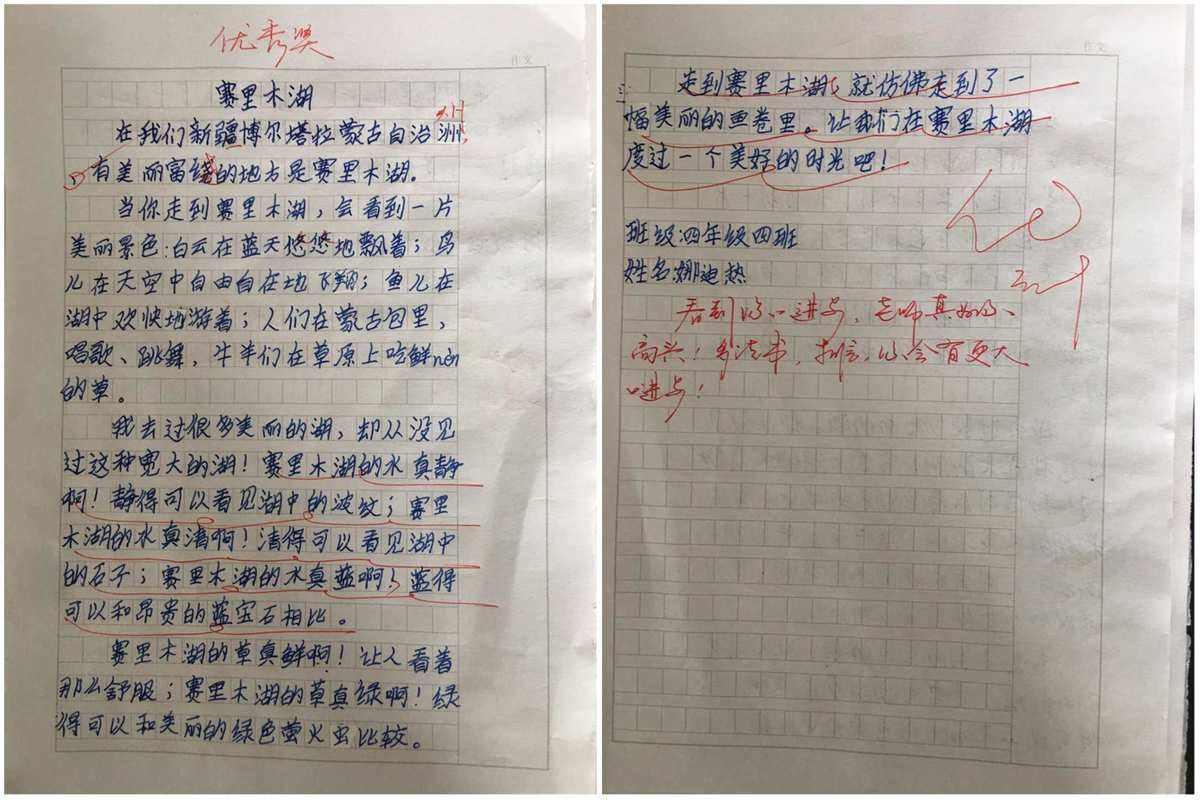 优秀奖
作文
赛里木湖
在我们新疆博尔塔拉蒙古自治洲,
州
有美丽富饶的地方是赛里木湖。
当你走到赛里木湖，会看到一片
美丽景色:白云在蓝天悠悠地飘着；鸟
儿在天空中自由自在地飞翔；鱼儿在
湖中欢快地游着；人们在蒙古包里,
唱歌、跳舞，牛羊们在草原上吃鲜nèn
的草。
我去过很多美丽的湖，却从没见
过这种宽大的湖！赛里木湖的水真静
啊！静得可以看见湖中的波纹；赛里
木湖的水真清啊！清得可以看见湖中
的石子；赛里木湖的水真蓝啊！蓝得
可以和昂贵的蓝宝石相比。
赛里木湖的草真鲜啊！让人看着
那么舒服；赛里木湖的草真绿啊！绿
得可以和美丽的绿色萤火虫比较。
作文
走到赛里木湖，就仿佛走到了一
幅美丽的画卷里。让我们在赛里木湖
度过一个美好的时光吧！
优
班级:四年级四班
姓名:娜迪热
看到你的进步，老师真为你
高兴！多读书，相信你会有更大
的进步！